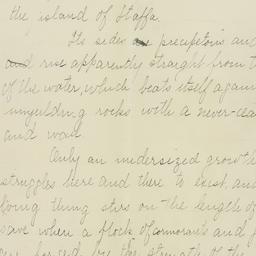 the island of Staffa.
Its sides are precipetous and
and rise apparently straight from t
of the water, which beats itself again
unyielding rocks with a never-cea
and wail
Only an undersized growth
struggles here and there to exist, and
living thing stirs on the length of
save when a flock of cormorants and
are forced by the strength of the